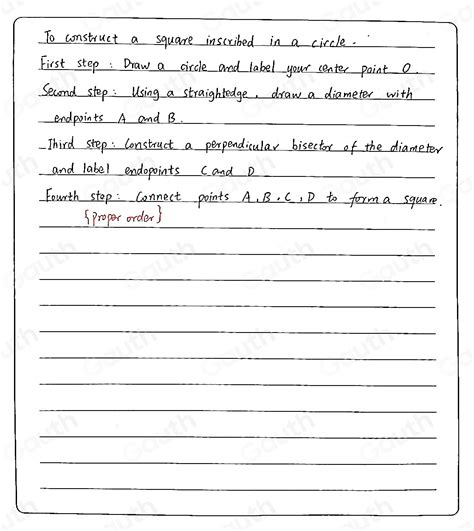 To construct a square inscribed in a circle.
First step: Draw a circle and label your center point O.
Second step: Using a straightedge, draw a diameter with
endpoints A and B.
Third step: Construct a perpendicular bisector of the diameter
and label endopoints C and D
Fourth step: Connect points A, B, C, D to form a square.
{proper order}
Gauth